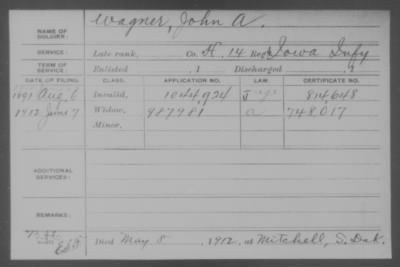 NAME OF SOLDIER: Wagner, John A.
SERVICE: Late rank, Co. H, 14 Reg't Iowa Infy
TERM OF SERVICE: Enlisted , 1 Discharged , 1
DATE OF FILING. CLASS. APPLICATION NO. LAW. CERTIFICATE NO.
1891 Aug. 6 Invalid, 1044,924 814,648
1912 June 7 Widow, 987981 a 748,017
Minor,
ADDITIONAL SERVICES:
REMARKS:
Died May 8, 1912, at Mitchell, S. Dak.